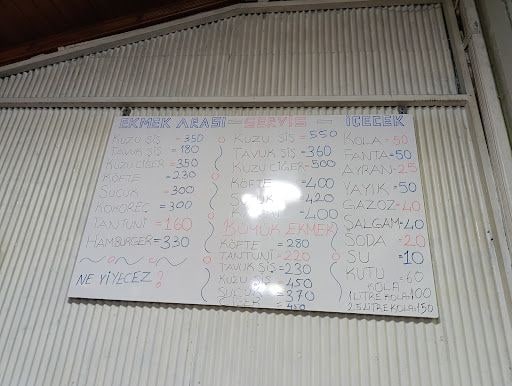 EKMEK ARASI
KUZU ŞİŞ = 350
TAVUK ŞİŞ = 180
KUZU CİĞER = 350
KÖFTE = 230
SUCUK = 300
KOKOREÇ = 300
TANTUNİ = 160
HAMBURGER = 330
NE YİYECEZ ?
SERVİS
KUZU ŞİŞ = 550
TAVUK ŞİŞ = 360
KUZU CİĞER = 500
KÖFTE = 400
SUCUK = 420
= 400
BÜYÜK EKMEK
KÖFTE = 280
TANTUNİ = 220
TAVUK ŞİŞ = 230
KUZU ŞİŞ = 450
SUCUK = 370
CİĞER = 450
İÇECEK
KOLA = 50
FANTA = 50
AYRAN = 25
YAYIK = 50
GAZOZ = 40
ŞALGAM = 40
SODA = 20
SU = 10
KUTU KOLA = 60
1 LİTRE KOLA = 100
2.5 LİTRE KOLA = 150